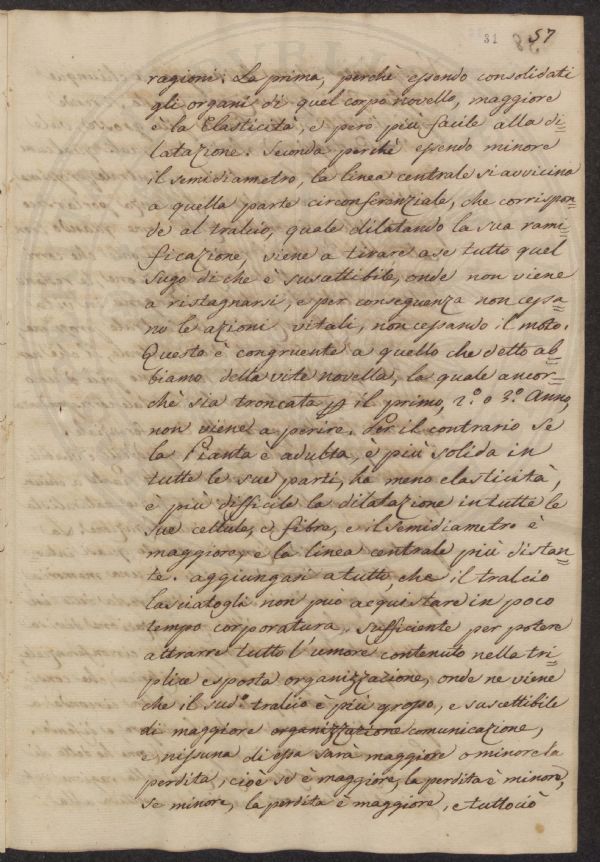 31 57
ragioni. La prima, perchè essendo consolidati
gli organi di quel corpo novello, maggiore
è la Elasticità, e però più facile alla di=
latazione. Seconda perchè essendo minore
il semidiametro, la linea centrale si avvicina
a quella parte circonferenziale, che corrispon=
de al tralcio, quale dilatando la sua rami=
ficazione, viene a tirare a se tutto quel
sugo di che è susattibile, onde non viene
a ristagnarsi, e per conseguenza non cessa=
no le azioni vitali, non cessando il moto.
Questo è congruente a quello che detto ab=
biamo della vite novella, la quale ancor=
chè sia troncata il primo, 2.º o 3.º Anno,
non viene a perire. Per il contrario se
la Pianta è adulta, è più solida in
tutte le sue parti, ha meno elasticità,
è più difficile la dilatazione in tutte le
sue cellule, e fibre, e il semidiametro è
maggiore, e la linea centrale più distan=
te. aggiungasi a tutto, che il tralcio
lasciatogli non può acquistare in poco
tempo corporatura, sufficiente per potere
attrarre tutto l'umore contenuto nella tri=
plice esposta organizzazione, onde ne viene
che il sud.º tralcio è più grosso, e suscettibile
di maggiore organizzazione comunicazione,
e nissuna di essa sarà maggiore o minore la
perdita, cioè se è maggiore, la perdita è minore,
se minore, la perdita è maggiore, e tutto ciò